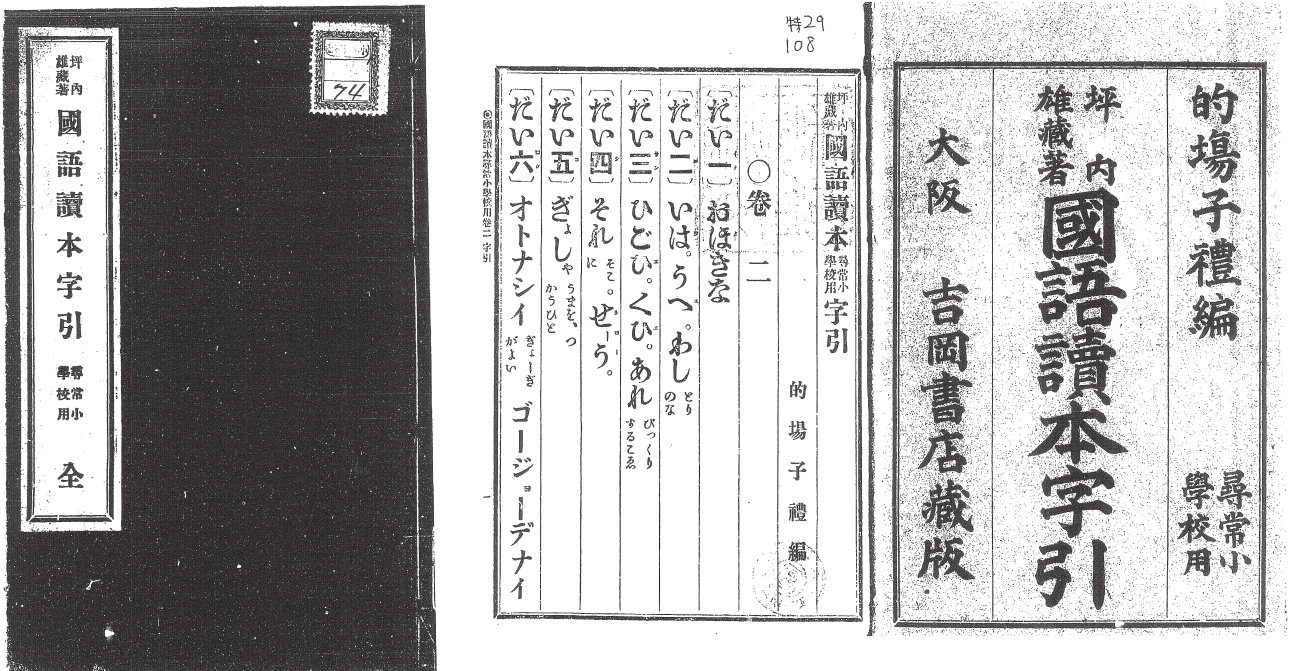 坪內雄藏著 國語讀本字引 尋常小學校用 全
74
特29
108
坪內雄藏著 國語讀本 尋常小學校用 字引
的場子禮編
〇卷二
〔だい一〕おほきな
〔だい二〕いは。うへ。わし とりのな
〔だい三〕ひごひ。くひ。あれ びっくりするこゑ
〔だい四〕それ そこに。せーう。
〔だい五〕ぎょしゃ うまを、つかうひと
〔だい六〕オトナシイ ぎょーぎがよい ゴージョーデナイ
◎國語讀本尋常小學校用卷二字引
一
的場子禮編 尋常小學校用
坪內雄藏著 國語讀本字引
大阪 吉岡書店藏版